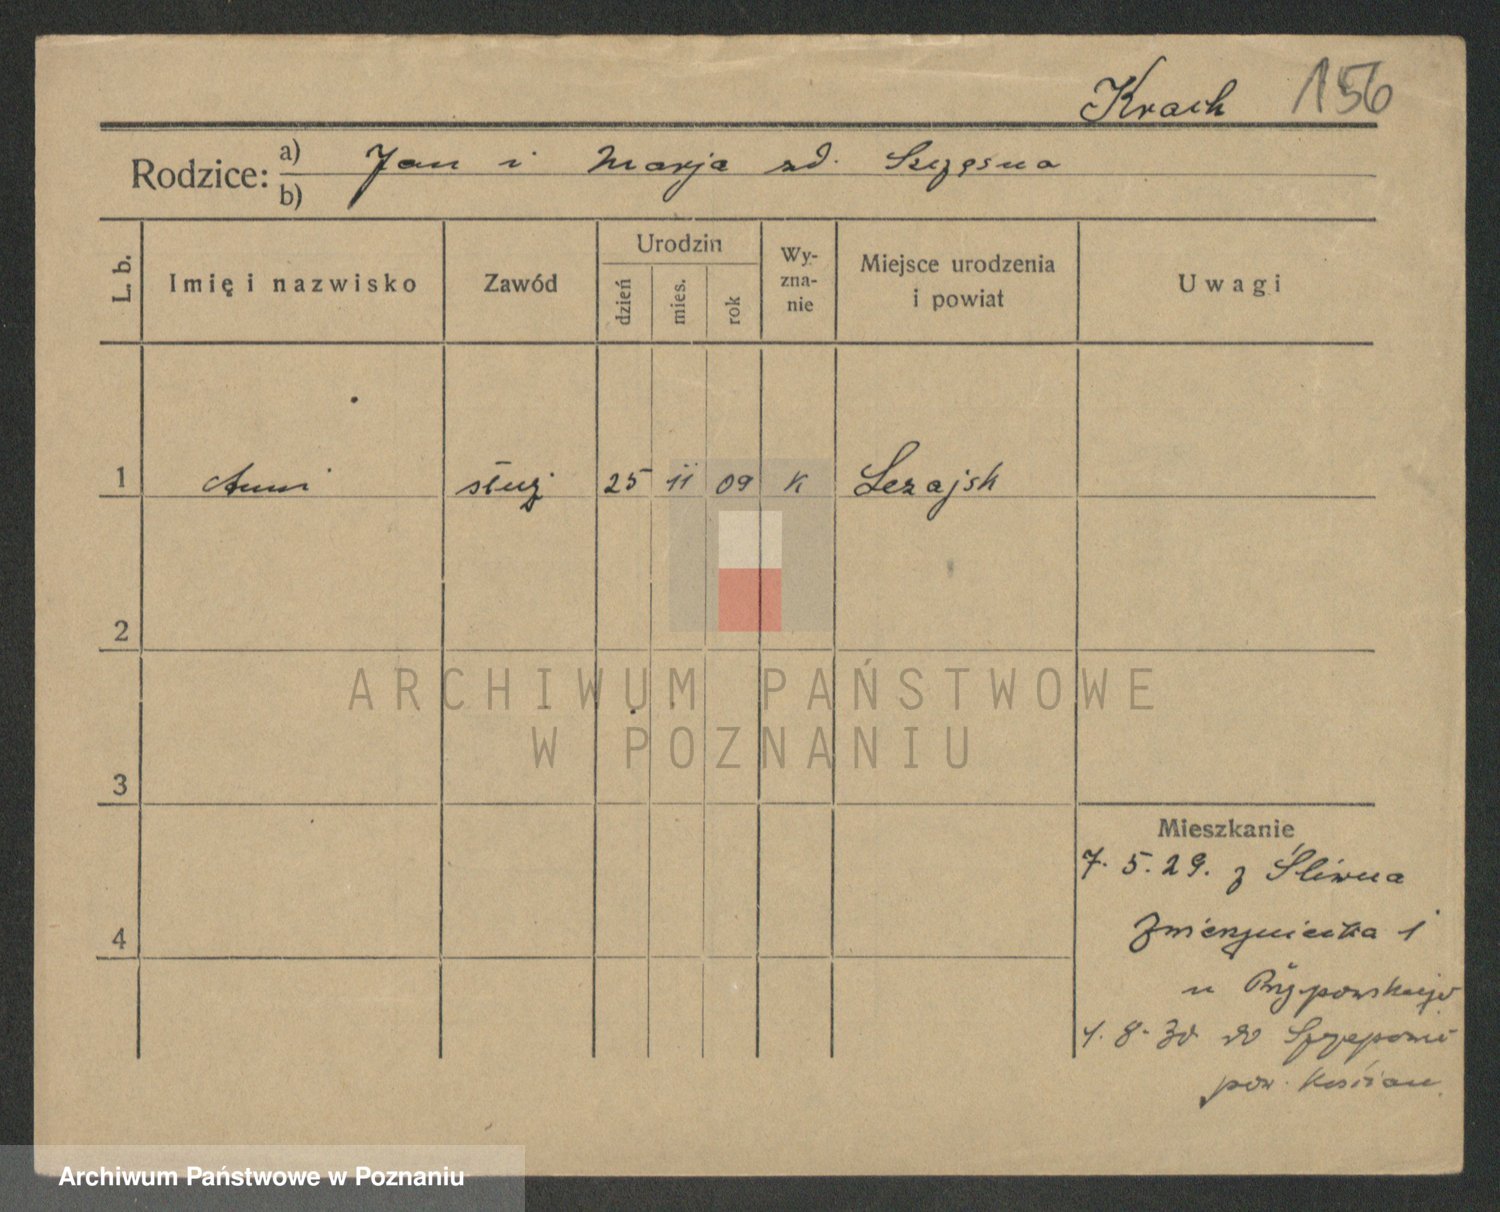 Krach 156
Rodzice: a) Jan i Marja zd. Szczęsna
b)
L. b.
Imię i nazwisko
Zawód
Urodzin
dzień
mies.
rok
Wy-
zna-
nie
Miejsce urodzenia
i powiat
Uwagi
1 służ 25 11 09 K Leżajsk
2
3
4
Mieszkanie
7. 5. 29. z Śliwna
1
u
1. 8. 30 do
pow. Kościan
ARCHIWUM PAŃSTWOWE
W POZNANIU
Archiwum Państwowe w Poznaniu